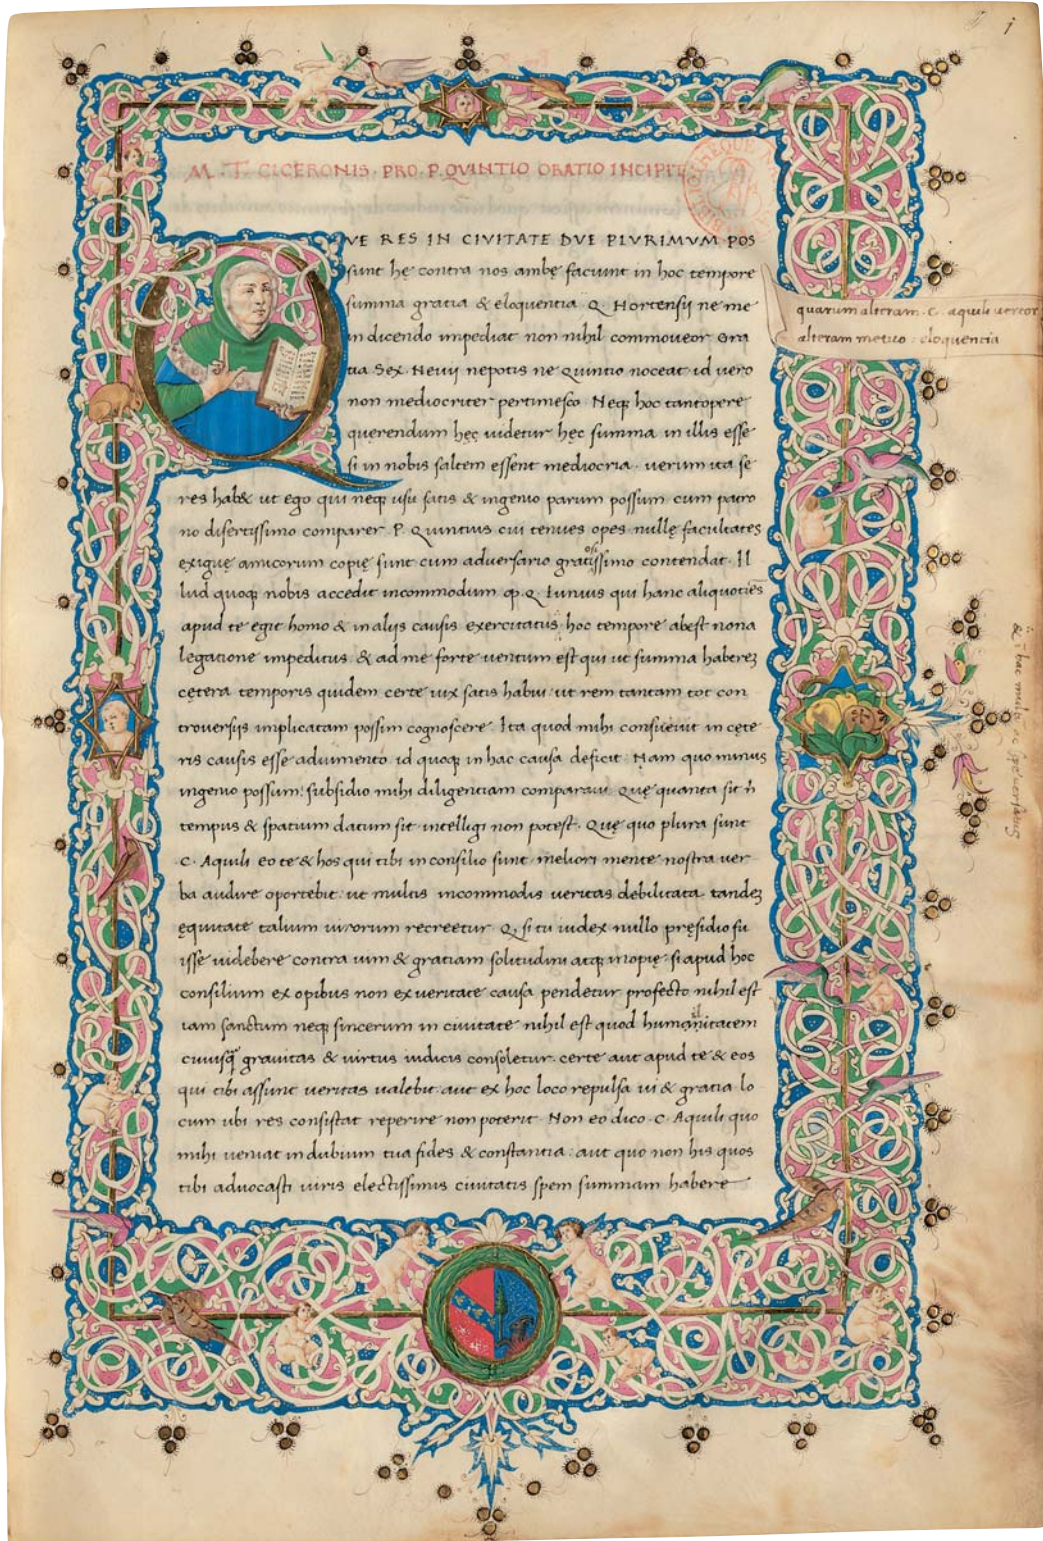 j
M · T · CICERONIS · PRO · P. QVINTIO ORATIO INCIPIT
QVE RES IN CIVITATE DVE PLVRIMVM POS
sunt hę contra nos ambę faciunt in hoc tempore
summa gratia & eloquentia Q. Hortensij ne me
in dicendo impediat non nihil commoveor gra
tia Sex. Nevij nepotis ne Quintio noceat id vero
non mediocriter pertimesco. Neq hoc tantopere
querendum hęc videtur hęc summa in illis esse
si in nobis saltem essent mediocria. verum ita se
res hab& ut ego qui neq usu satis & ingenio parum possum cum patro
no disertissimo comparer P. Quintius cui tenues opes nullę facultates
exiguę amicorum copię sunt cum adversario gratissimo contendat. Il
osi
lud quoq nobis accedit incommodum qp. Q. Iunius qui hanc aliquotiēs
apud te egit homo & in alijs causis exercitatus hoc tempore abest nona
legatione impeditus & ad me forte ventum est qui ut summa haberē
cętera temporis quidem certe vix satis habui ut rem tantam tot con
troversijs implicatam possim cognoscere. Ita quod mihi consuevit in cęte
ris causis esse adiumento id quoq in hac causa deficit. Nam quo minus
ingenio possum: subsidio mihi diligentiam comparavi. Quę quanta sit ñ
tempus & spatium datum sit intelligi non potest. Quę quo plura sunt
C. Aquili eo te & hos qui tibi in consilio sunt meliori mente nostra ver
ba audire oportebit ut multis incommodis veritas debilitata tandē
ęquitate talium virorum recreetur. Q, si tu iudex nullo pręsidio fu
isse videbere contra vim & gratiam solitudini atq inopię. si apud hoc
consilium ex opibus non ex veritate causa pendetur profecto nihil est
iam sanctum neq sincerum in civitate nihil est quod humanitatem
cuiusq̃ gravitas & virtus iudicis consoletur. certe aut apud te & eos
qui tibi assunt veritas valebit aut ex hoc loco repulsa vi & gratia lo
cum ubi res consistat reperire non poterit. Non eo dico C. Aquili quo
mihi veniat in dubium tua fides & constantia: aut quo non his quos
tibi advocasti viris electissimis civitatis spem summam habere
quarum alteram. C. aquili vereor
alteram metuo: eloquencia